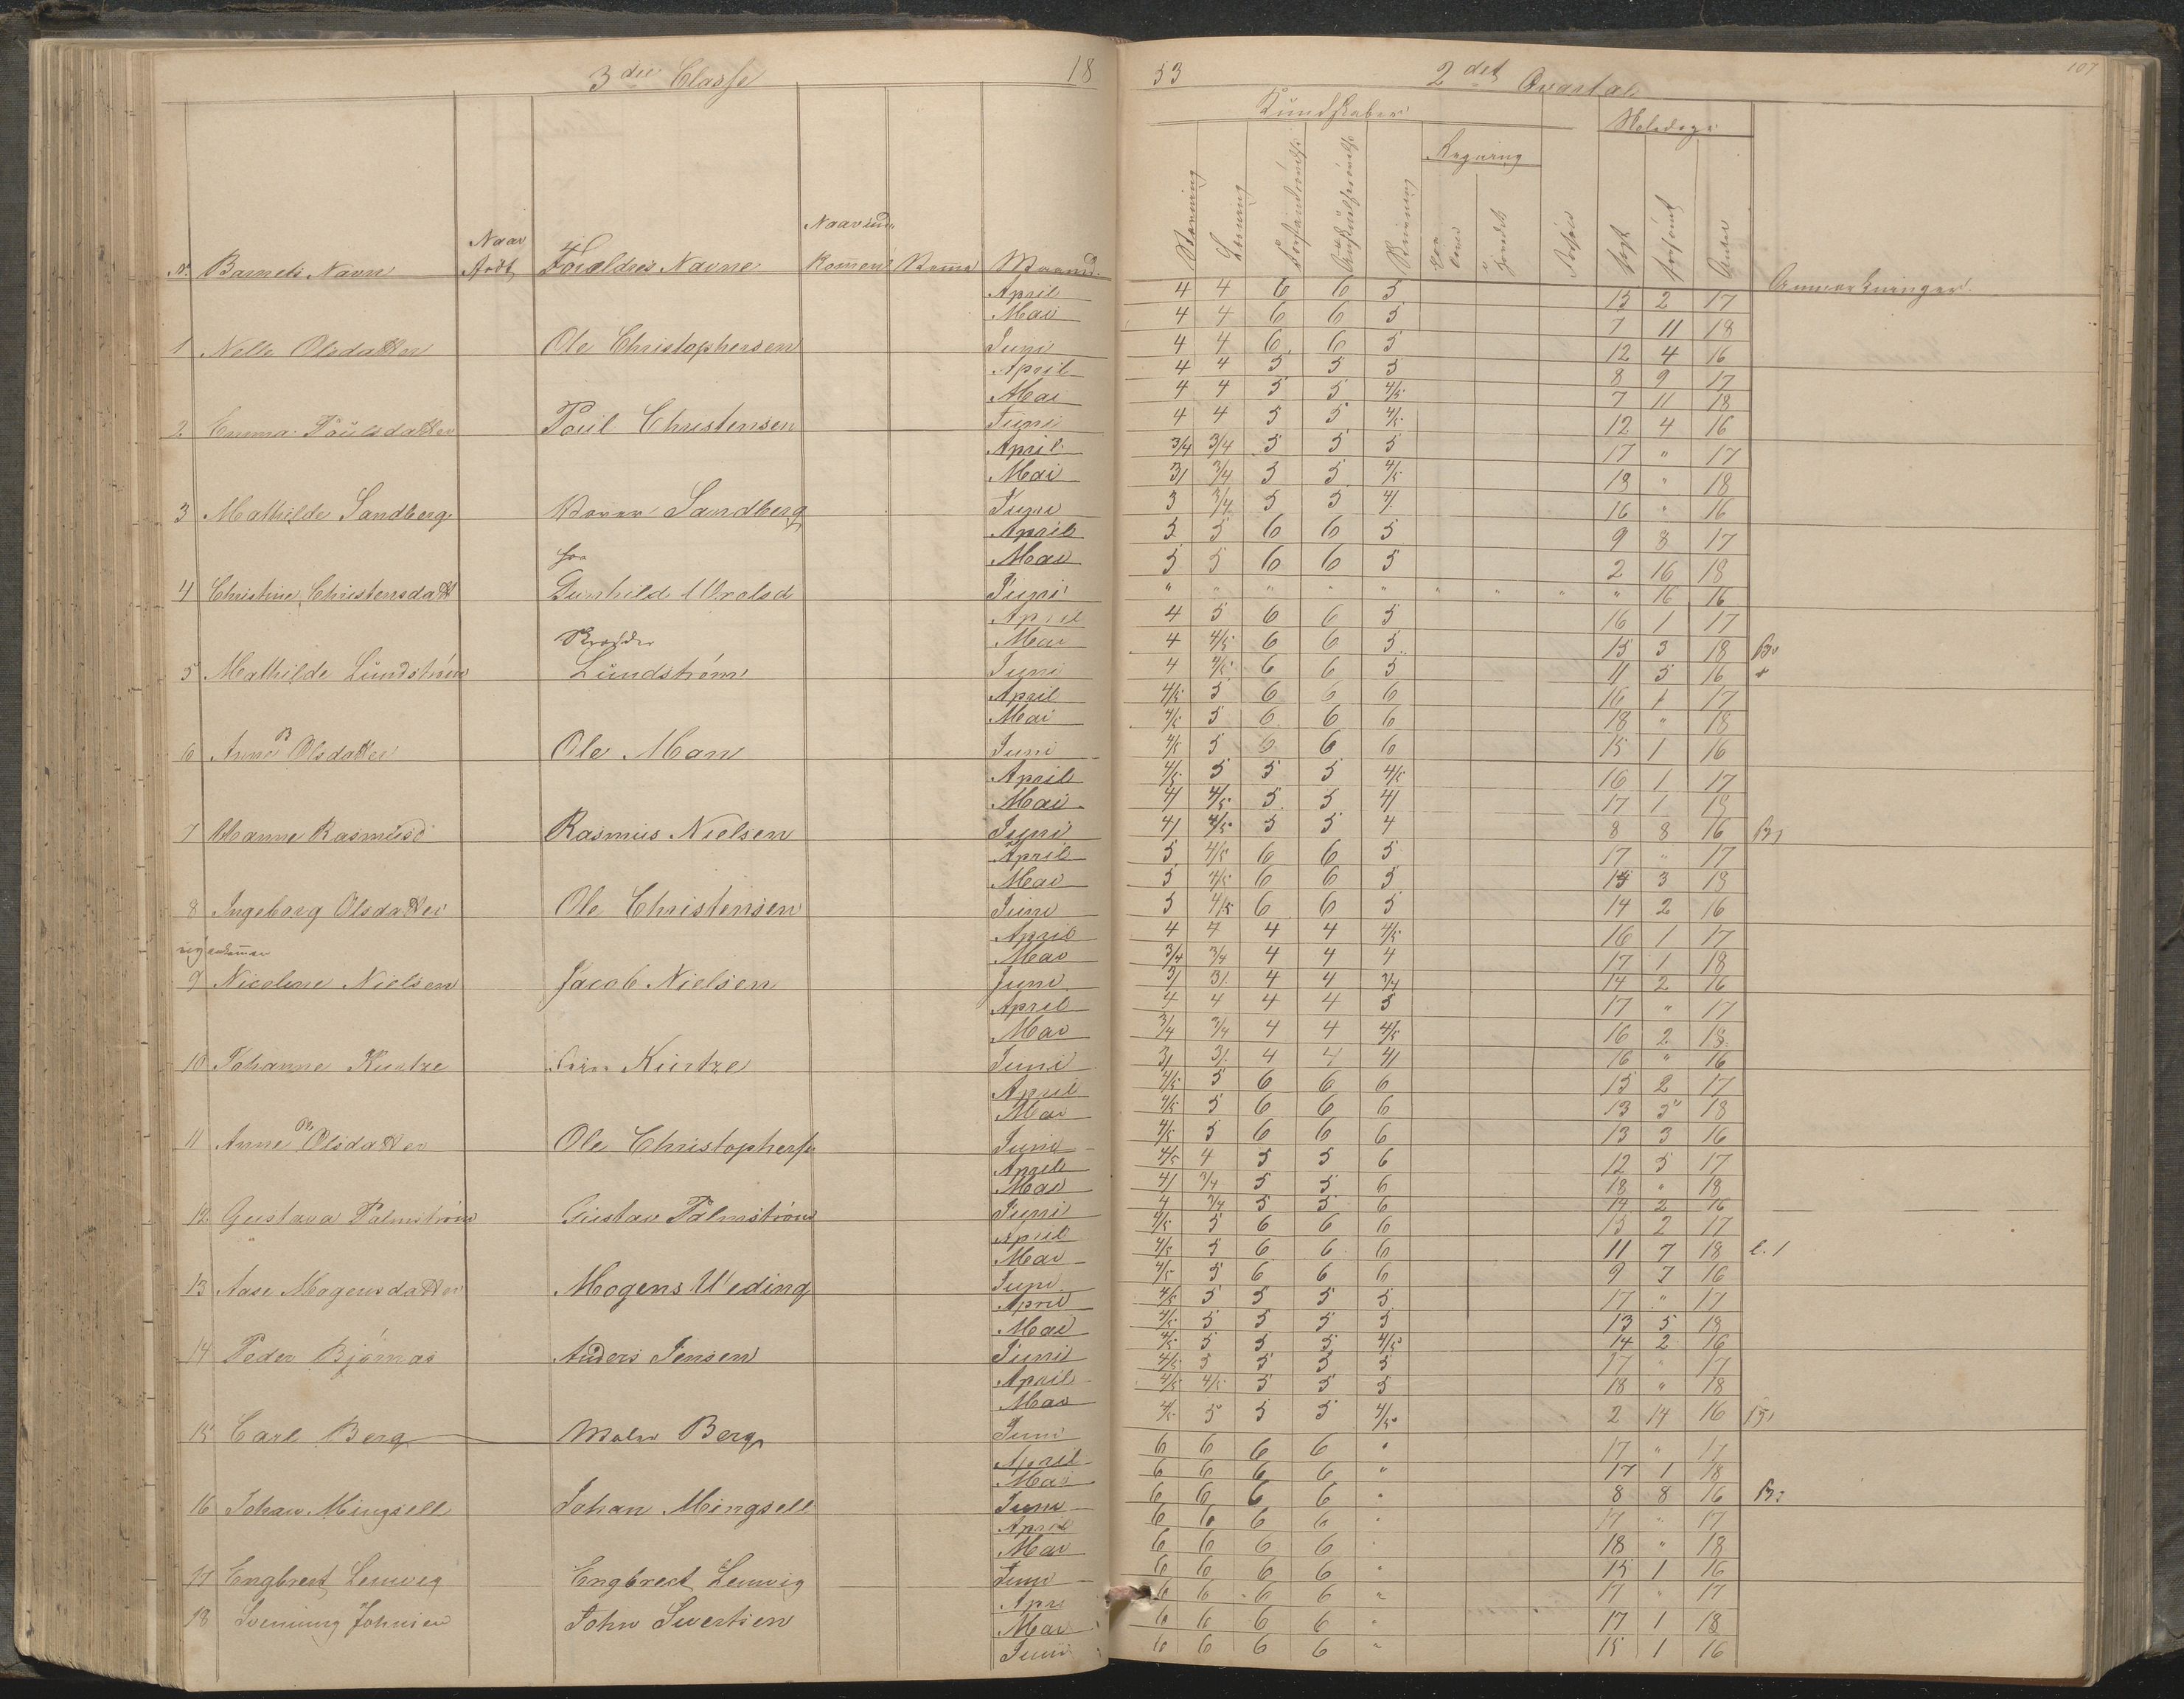 3die Classe 18
53 2det Qvartal 107
Kundskaber Heledage
Regning
Naar Naar ud
No Barnets Navn Født Forældres Navne Kommen Maaned
Stavning Læsning Forstandsøvelse Skrivning Anmærkninger
April 4 4 6 6 5 15 2 17
Mai 4 4 6 6 5 7 11 18
1 Nelle Olsdatter Ole Christophersen Juni 4 4 6 6 5 12 4 16
April 4 4 5 5 5 8 9 17
Mai 4 4 5 5 4/5 7 11 18
2 Emma Poulsdatter Poul Christensen Juni 4 4 5 5 4/5 12 4 16
April 3/4 3/4 5 5 5 17 " 17
Mai 3/ 3/4 5 5 4/5 18 " 18
3 Mathilde Sandberg Sandberg Juni 3 3/4 5 5 4/ 16 " 16
April 5 5 6 6 5 9 8 17
for Mai 5 5 6 6 5 2 16 18
4 Christine Christensdatt Gunhild Juni " " " " " " " " " 16 16
April 4 5 6 6 5 16 1 17
Mai 4 4/5 6 6 5 15 3 18
5 Mathilde Lundstrøm Lundstrøm Juni 4 4/5 6 6 5 11 5 16
April 4/5 5 6 6 6 16 1 17
Mai 4/5 5 6 6 6 18 " 18
6 Anne B Olsdatter Ole Man Juni 4/5 5 6 6 6 15 1 16
April 4/5 5 5 5 4/5 16 1 17
Mai 4/ 4/5 5 5 4/ 17 1 18
7 Hanne Rasmusd Rasmus Nielsen Juni 4/ 4/5 5 5 4 8 8 16
April 5 4/5 6 6 5 17 " 17
Mai 5 4/5 6 6 5 15 3 18
8 Ingeborg Olsdatter Ole Christensen Juni 5 4/5 6 6 5 14 2 16
April 4 4 4 4 4/5 16 1 17
Mai 3/4 3/4 4 4 4 17 1 18
9 Nicoline Nielsen Jacob Nielsen Juni 3/ 3/ 4 4 3/4 14 2 16
April 4 4 4 4 5 17 " 17
Mai 3/4 3/4 4 4 4/5 16 2 18
10 Johanne Kurtze Kurtze Juni 3/ 3/ 4 4 4/ 16 " 16
April 4/5 5 6 6 6 15 2 17
Mai 4/5 5 6 6 6 13 5 18
11 Anne Olsdatter Ole Christophers Juni 4/5 5 6 6 6 13 3 16
April 4/5 4 5 5 6 12 5 17
Mai 4/ 3/4 5 5 6 18 " 18
12 Gustava Palmstrøm Gustav Palmstrøm Juni 4 3/4 5 5 6 14 2 16
April 4/5 5 6 6 6 15 2 17
Mai 4/5 5 6 6 6 11 7 18
13 Aase Mogensdatter Mogens Ueding Juni 4/5 5 6 6 6 9 7 16
April 4/5 5 5 5 5 17 " 17
Mai 4/5 5 5 5 5 13 5 18
14 Peder Bjørnas Anders Jensen Juni 4/5 5 5 5 4/5 14 2 16
April 4/5 5 5 5 5 17 " 17
Mai 4/5 4/5 5 5 5 18 " 18
15 Carl Berg Berg Juni 4/5 5 5 5 4/5 2 14 16
April 6 6 6 6 " 17 " 17
Mai 6 6 6 6 " 17 1 18
16 Johan Mingsell Johan Mingsell Juni 6 6 6 6 " 8 8 16
April 6 6 6 6 " 17 " 17
Mai 6 6 6 6 " 18 " 18
17 Engbrect Lenvig Engbrect Lenvig Juni 6 6 6 6 " 15 1 16
Apri 6 6 6 6 " 17 " 17
18 Svenning Johnsen John Swertsen Mai 6 6 6 6 " 17 1 18
Juni 6 6 6 6 " 15 1 16